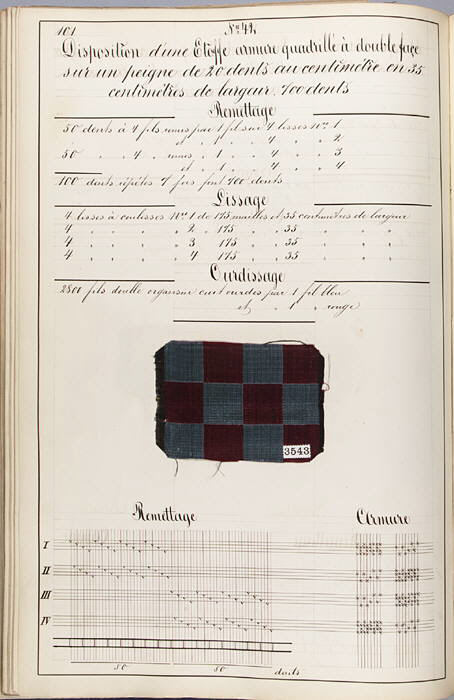 101
No 42
Disposition d'une Etoffe armure quadrille à double face
sur un peigne de 20 dents au centimètre en 35
centimètres de largeur. 700 dents
Remettage
50 dents à 4 fils remis par 1 fil sur 4 lisses No 1
et . 1 . 4 . 2
50 . 4 . remis . 1 . 4 . 3
et . 1 . 4 . 4
100 dents répétés 7 fois font 700 dents
Lissage
4 lisses à coulisses No 1 de 175 mailles et 35 centimètres de largeur
4 . . . . 2 . 175 . . 35 . .
4 . . . . 3 175 . . 35 . .
4 . . . . 4 175 . . 35 . .
Ourdissage
2800 fils double organsin cuit ourdis par 1 fil bleu
et . 1 . rouge
3543
Remettage
Armure
I
II
III
IV
50
50
dents